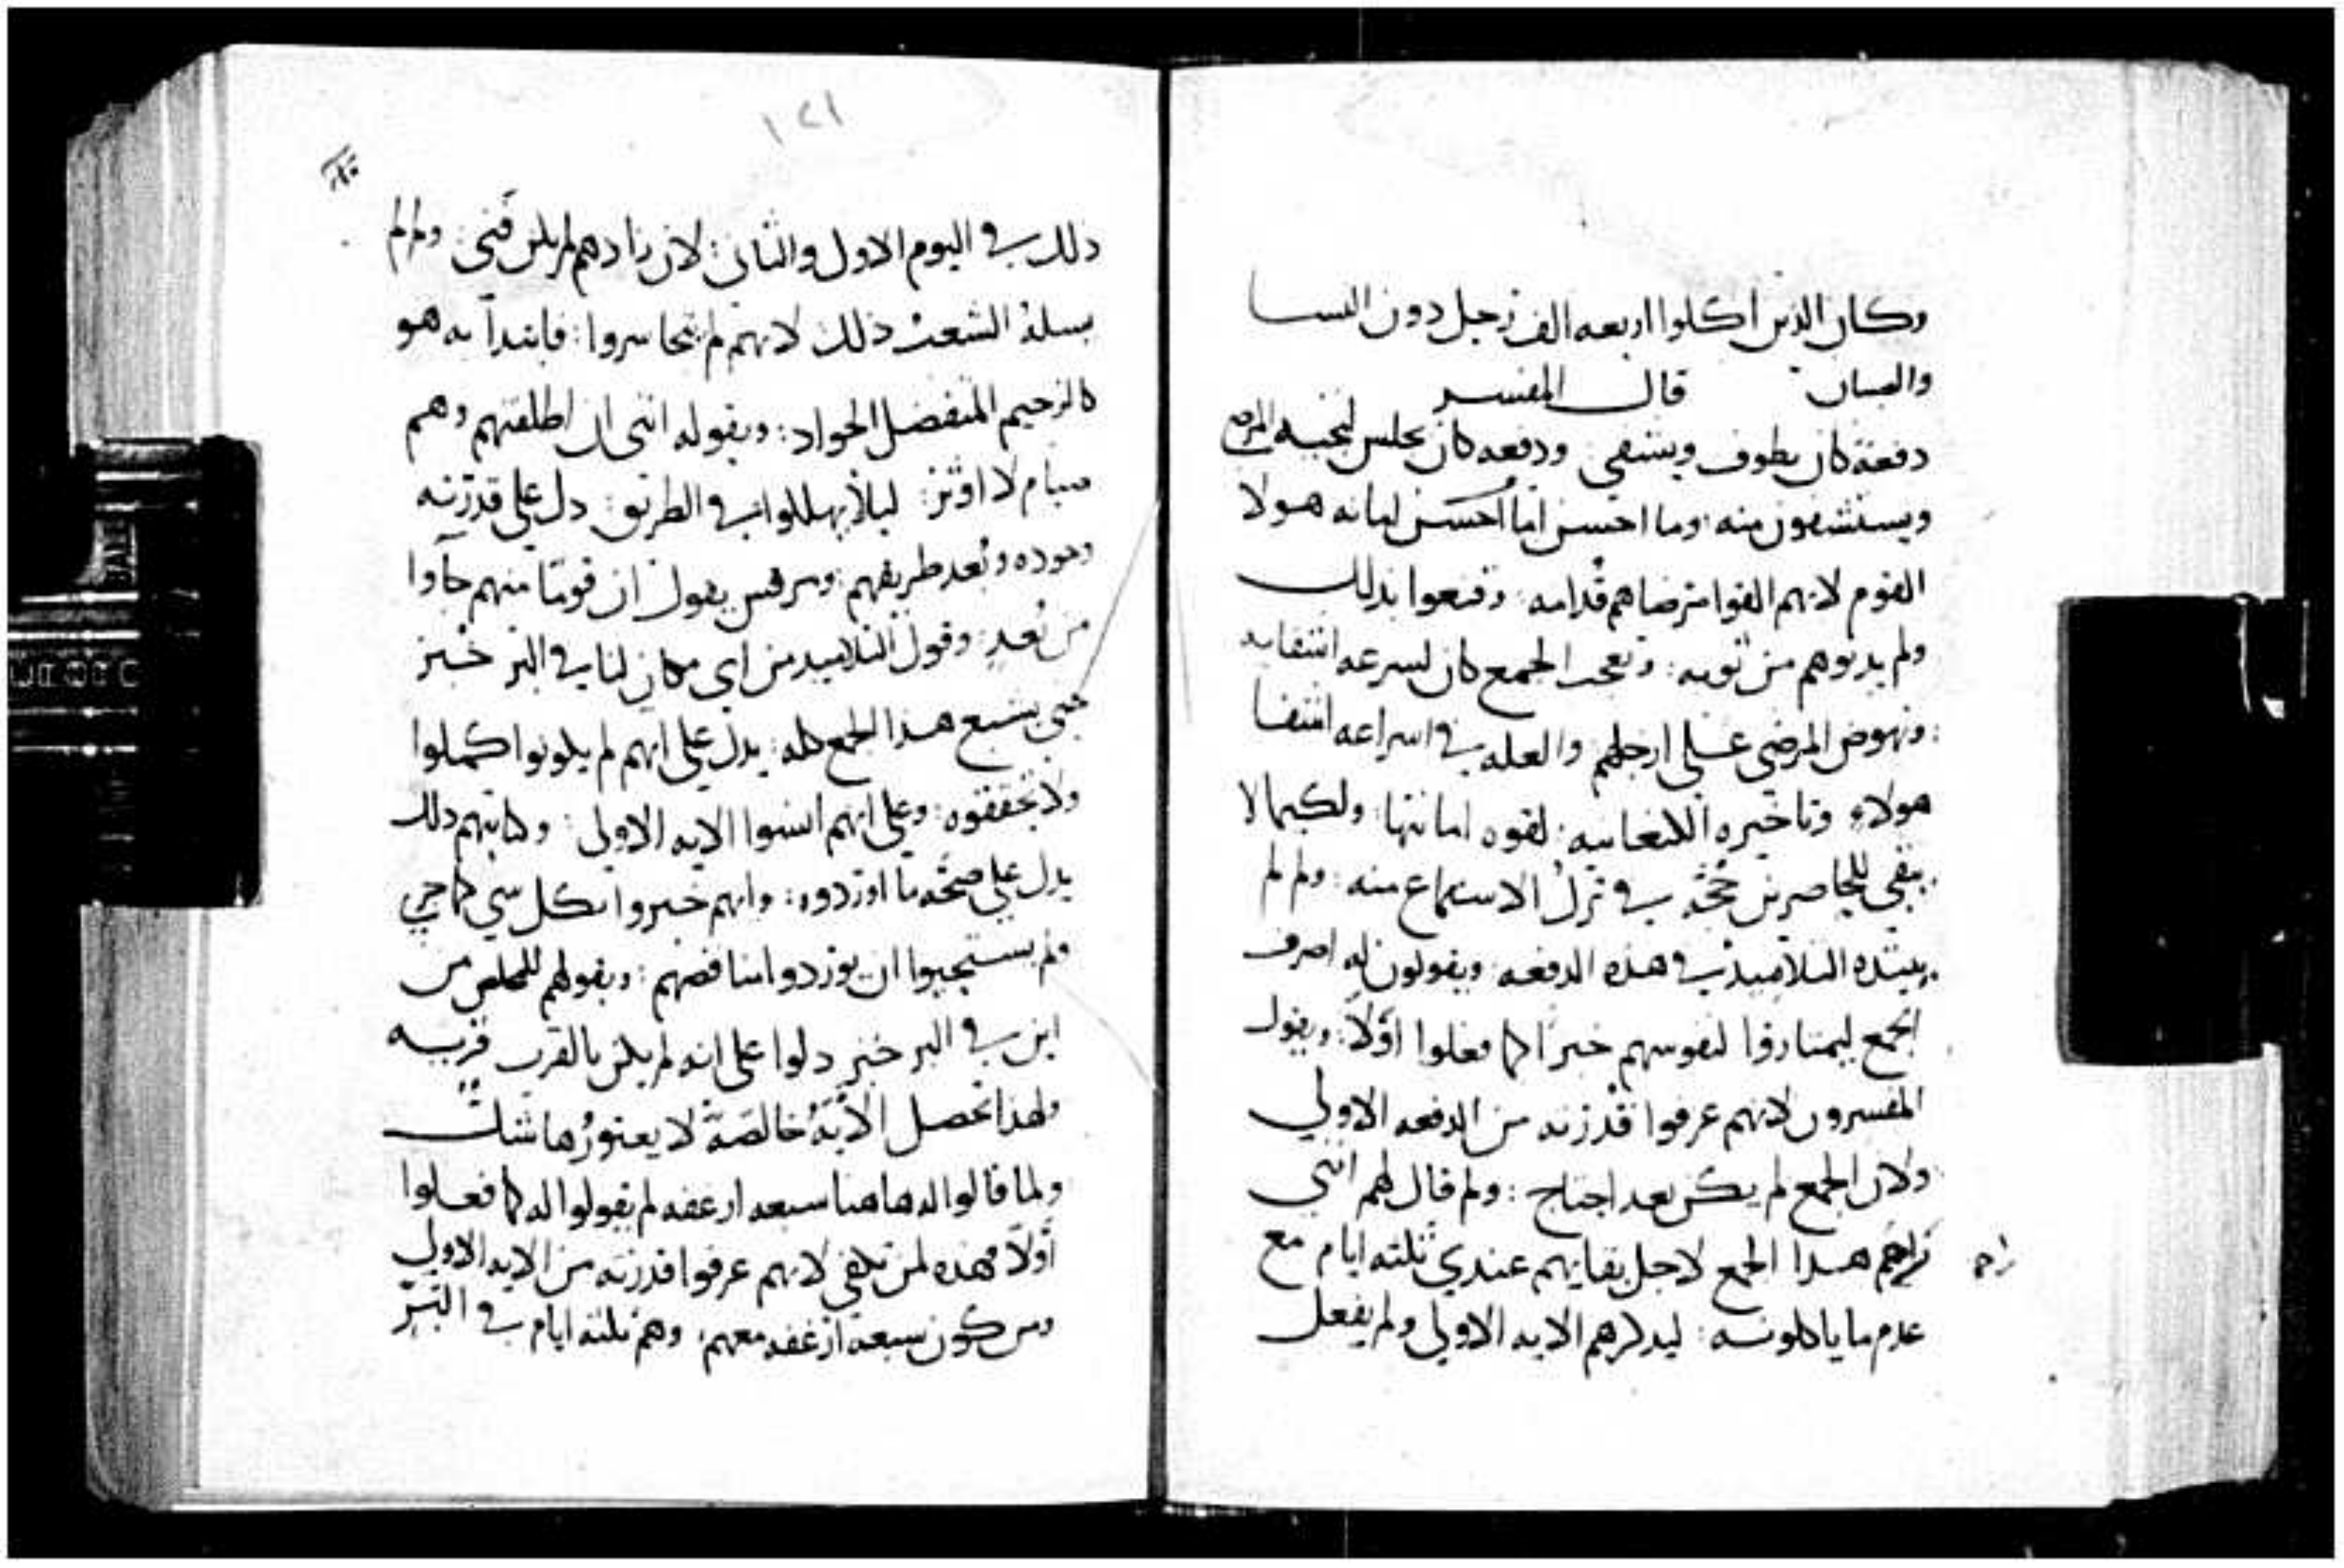 وكان الذين اكلوا اربعه الف رجل دون النسا
والصبيان قال المفسر
دفعة كان يطوف ويشفي ودفعه كان يجلس لتجيه المرضى
ويستشفون منه وما احسن اما احسن امانه هولا
القوم لانهم القوا مرضاهم قدامه وقنعوا بذلك
ولم يدنوهم من ثوبه وتعجب الجمع كان لسرعه اشفايه
ونهوض المرضي علي ارجلهم والعله في اسراعه اشفا
هولاء وتاخيره الكنعانيه لقوه امانتها ولكيما لا
يبقي للحاضرين حجة في ترك الاستماع منه ولم لم
يبتده التلاميذ في هذه الدفعه ويقولون له اصرف
الجمع ليمتاروا لنفوسهم خبزا كما فعلوا اولا ويقول
المفسرون لانهم عرفوا قدرته من الدفعه الاولي
ولان الجمع لم يكن بعد احتاج ولم قال لهم انني
اراحم هذا الجمع لاجل بقايهم عندي ثلثه ايام مع
راحم
عدم ما ياكلونه ليذكرهم الايه الاولي ولم يفعل
١٢١
ذلك في اليوم الاول والثاني لان زادهم لم يكن فني ولم لم
يسله الشعب ذلك لانهم لم يتجاسروا فابتدا به هو
كالرحيم المتفضل الجواد وبقوله انني ان اطلقتهم وهم
صيام لا اوثر ليلا يهلكوا في الطريق دل علي قدرته
وجوده وبعد طريقهم ومرقس يقول ان قوما منهم جاوا
من بعد وقول التلاميذ من اي مكان لنا في البر خبز
حتي يشبع هذا الجمع كله يدل علي انهم لم يكونوا كملوا
ولا تحققوه وعلي انهم انسوا الايه الاولي وكتابتهم ذلك
يدل علي صحة ما اوردوه وانهم خبروا بكل شي كما جري
ولم يستحيوا ان يوردوا مناقصهم وبقولهم للمخلص من
اين في البر خبز دلوا علي انه لم يكن بالقرب قريه
ولهذا تحصل الاية خالصة لا يعتورها شك
ولما قالوا له هاهنا سبعه ارغفه لم يقولوا له كما فعلوا
اولا فهذه لمن تكفي لانهم عرفوا قدرته من الايه الاولي
ومن كون سبعة ارغفه معهم وهم ثلثه ايام في البر